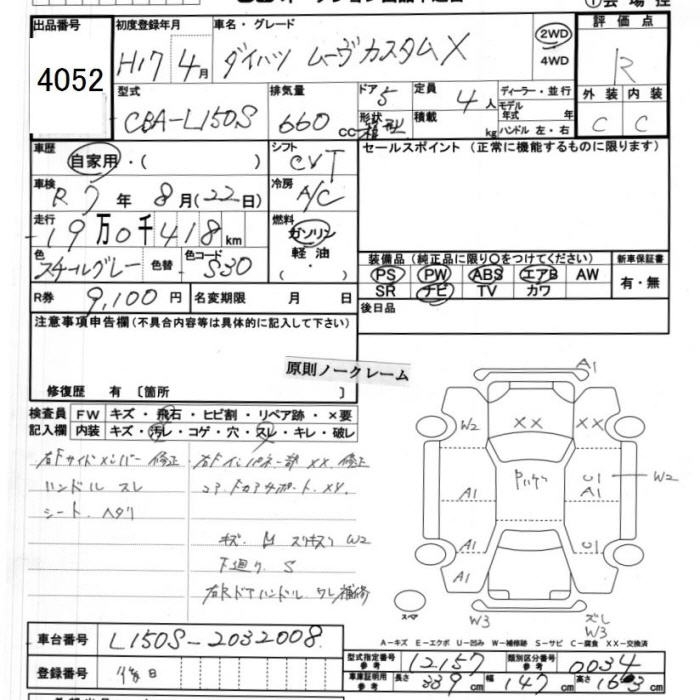 出品番号 初度登録年月 車名・グレード 評価点
4052 H17年 4月 ダイハツ ムーヴカスタムX 2WD 4WD R
型式 排気量 ドア 5 定員 4人 ディーラー・並行 外装 内装
CBA-L150S 660 cc 形状 箱型 積載 kg モデル年式 年式 ハンドル 左・右 C C
車歴 自家用・( ) シフト CVT セールスポイント (正常に機能するものに限ります)
車検 R7年 8月(22日) 冷房 A/C
走行 19万0千418km 燃料 ガソリン 軽油 ( ・ )
色 スチールグレー 色替 色コード S30
装備品 (純正品に限り○をつけてください) 新車保証書
PS PW ABS エアB AW 有・無
SR ナビ TV カワ
R券 9,100円 名変期限 月 日 後日品
注意事項申告欄(不具合内容等は具体的に記入して下さい)
原則ノークレーム
修復歴 有 〔箇所 〕
検査員 FW キズ・飛石・ヒビ割・リペア跡・×要
記入欄 内装 キズ・汚レ・コゲ・穴・スレ・キレ・破レ
右Fサイドメンバー 修正 右Fインパネ一部 XX 修正
ハンドル スレ コアサポート XX
シート ヘタリ
キズ 凹 スリキズ W2
下廻り S
右Rドアハンドル ワレ 補修
A1
W2 XX XX
A1 U1 A1 W2
A1 U1
A1
スペア W3 ズレ W3
A-キズ E-エクボ U-凹み W-補修跡 S-サビ C-腐食 XX-交換済
車台番号 L150S-2032008
型式指定番号 参考 12157 類別区分番号 参考 0034
登録番号
車庫証明用 参考 長さ 339cm 幅 147cm 高さ 163cm